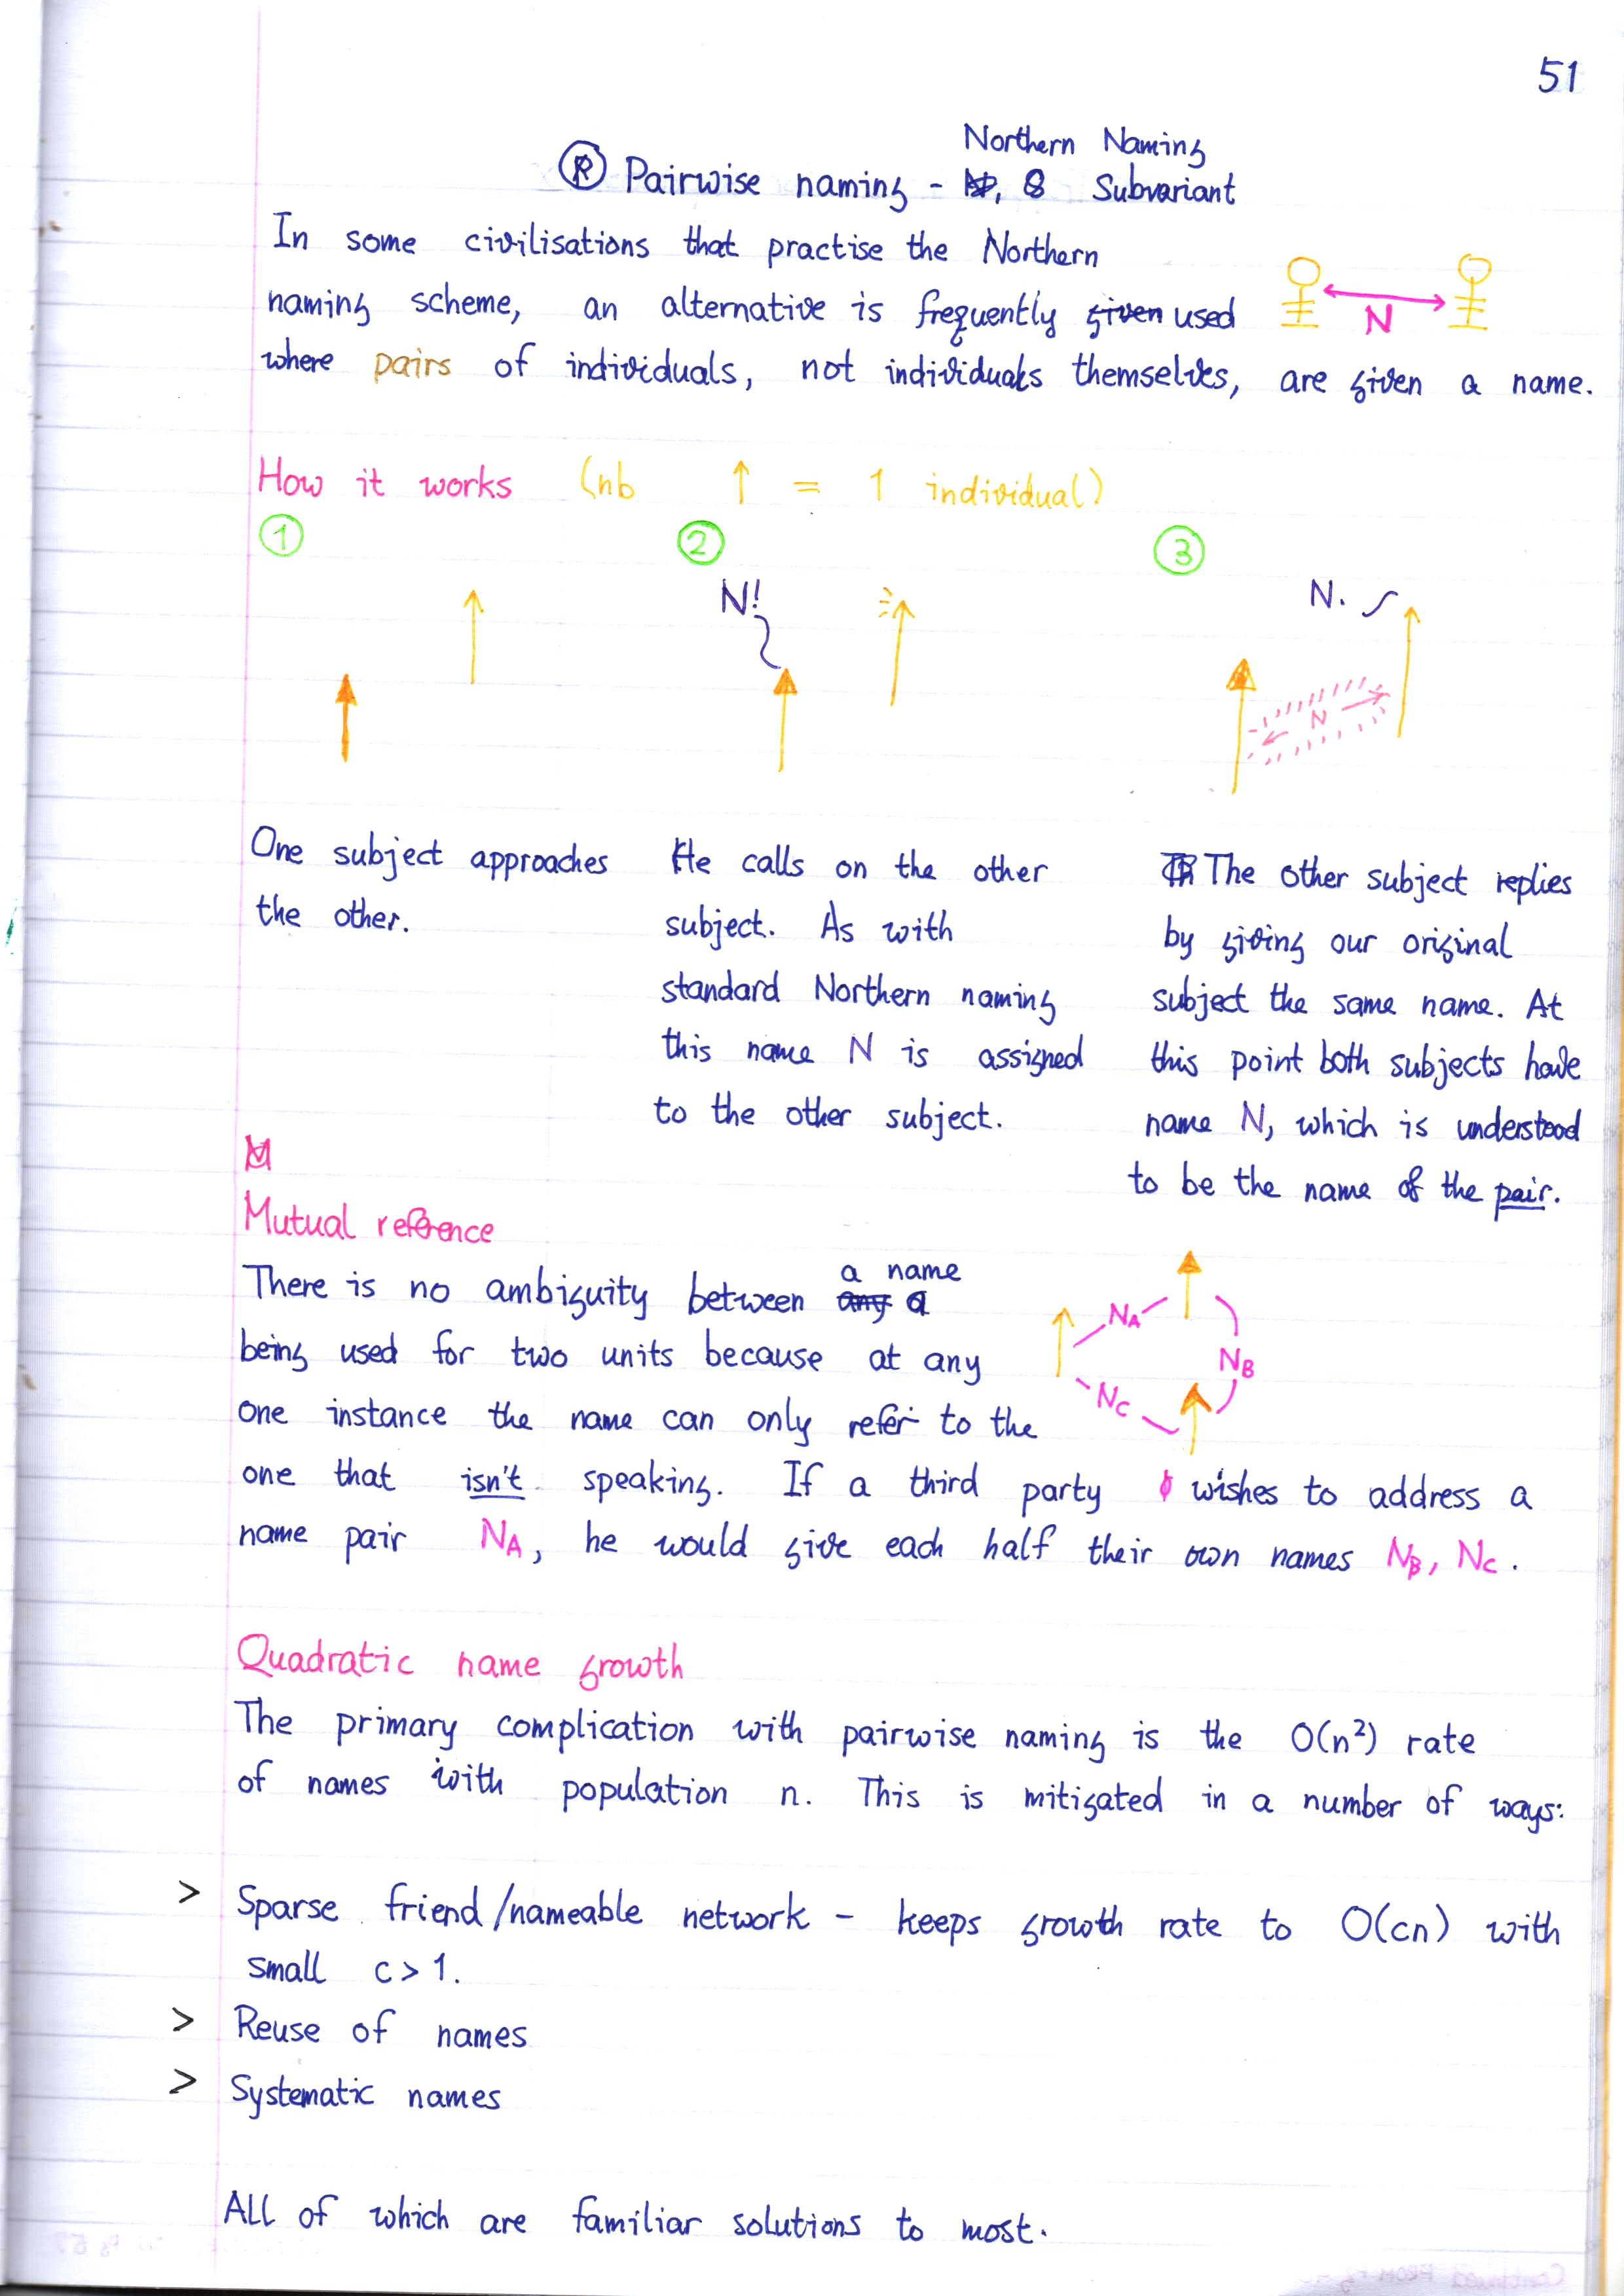 51
Northern Naming
Ⓡ Pairwise naming - Subvariant
In some civilisations that practise the Northern
naming scheme, an alternative is frequently given used
where pairs of individuals, not individuals themselves, are given a name.
N
How it works (nb ↑ = 1 individual)
① ② ③
N!
N.
N
One subject approaches
the other.
He calls on the other
subject. As with
standard Northern naming
this name N is assigned
to the other subject.
The other subject replies
by giving our original
subject the same name. At
this point both subjects have
name N, which is understood
to be the name of the pair.
Mutual reference
There is no ambiguity between any a a name
being used for two units because at any
one instance the name can only refer to the
one that isn't speaking. If a third party wishes to address a
name pair N_A, he would give each half their own names N_B, N_C.
N_A
N_B
N_C
Quadratic name growth
The primary complication with pairwise naming is the O(n²) rate
of names with population n. This is mitigated in a number of ways:
> Sparse friend/nameable network - keeps growth rate to O(cn) with
small c > 1.
> Reuse of names
> Systematic names
All of which are familiar solutions to most.